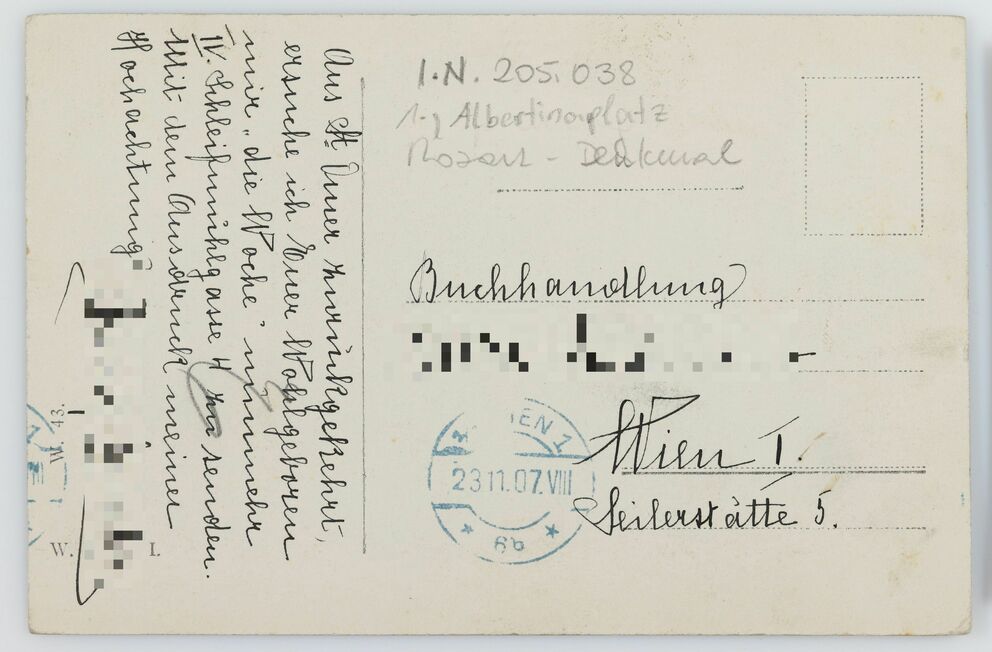 I.N. 205.038
1., Albertinaplatz
Mozart - Denkmal
Buchhandlung
Wien I.
Seilerstätte 5.
WIEN 1
23.11.07.VIII
* 6b *
Aus St. Vner zurückgekehrt,
ersuche ich Euer Wohlgeboren
mir „die Woche" nunmehr
IV. Schleifmühlgasse 4 zu senden.
Mit dem Ausdruck meiner
Hochachtung
W. 43.
W. I.